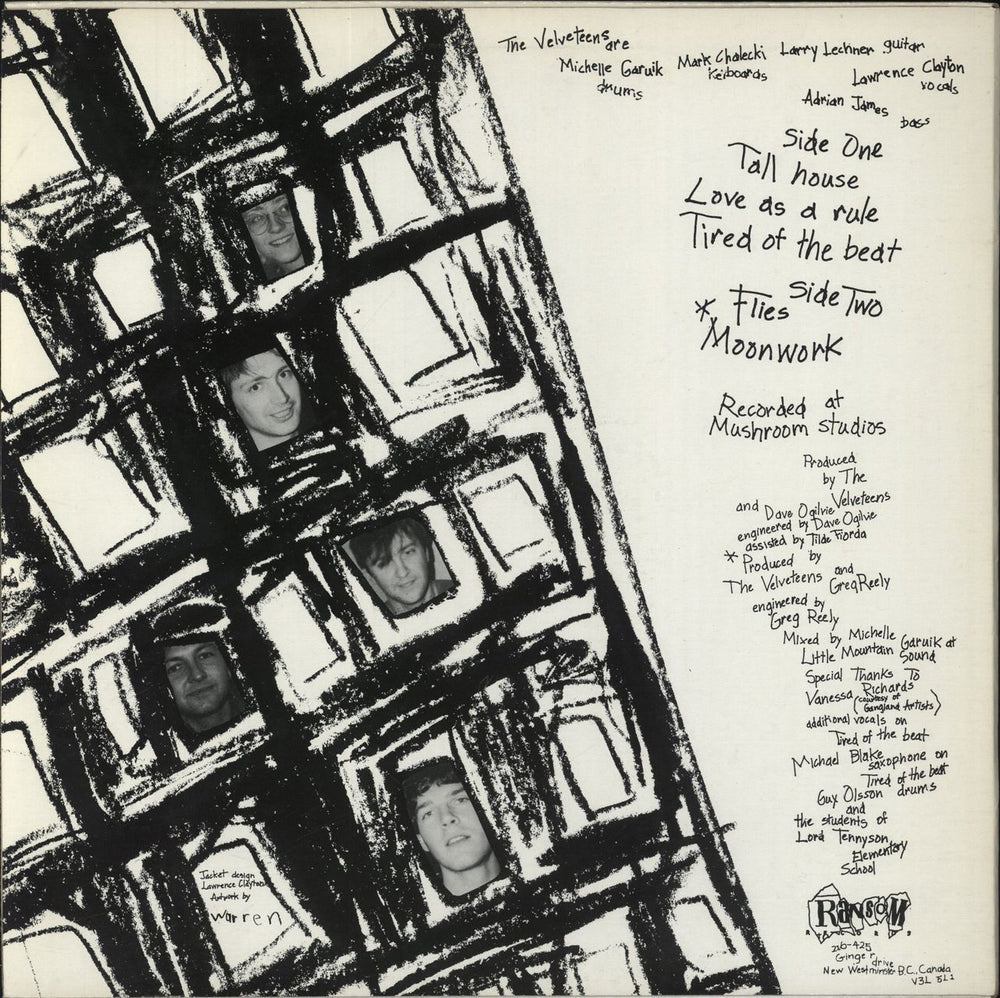 The Velveteens are
Michelle Garuik
drums
Mark Chalecki
Keiboards
Larry Lechner guitar
Lawrence Clayton
vocals
Adrian James
bass
Side One
Tall house
Love as a rule
Tired of the beat
Side Two
* Flies
Moonwork
Recorded at
Mushroom studios
Produced
by The
Velveteens
and Dave Ogilvie
engineered by Dave Ogilvie
assisted by Tilde Fiorda
* Produced by
The Velveteens and
Greg Reely
engineered by
Greg Reely
Mixed by Michelle Garuik at
Little Mountain Sound
Special Thanks To
Vanessa Richards
(courtesy of
Gangland Artists)
additional vocals on
Tired of the beat
Michael Blake
saxophone on
Tired of the beat
Guy Olsson drums
and
the students of
Lord Tennyson
Elementary
School
Jacket design
Lawrence Clayton
Artwork by
warren
RANSOM
RECORDS
206-425
Ginger drive
New Westminster B.C., Canada
V3L 5L1